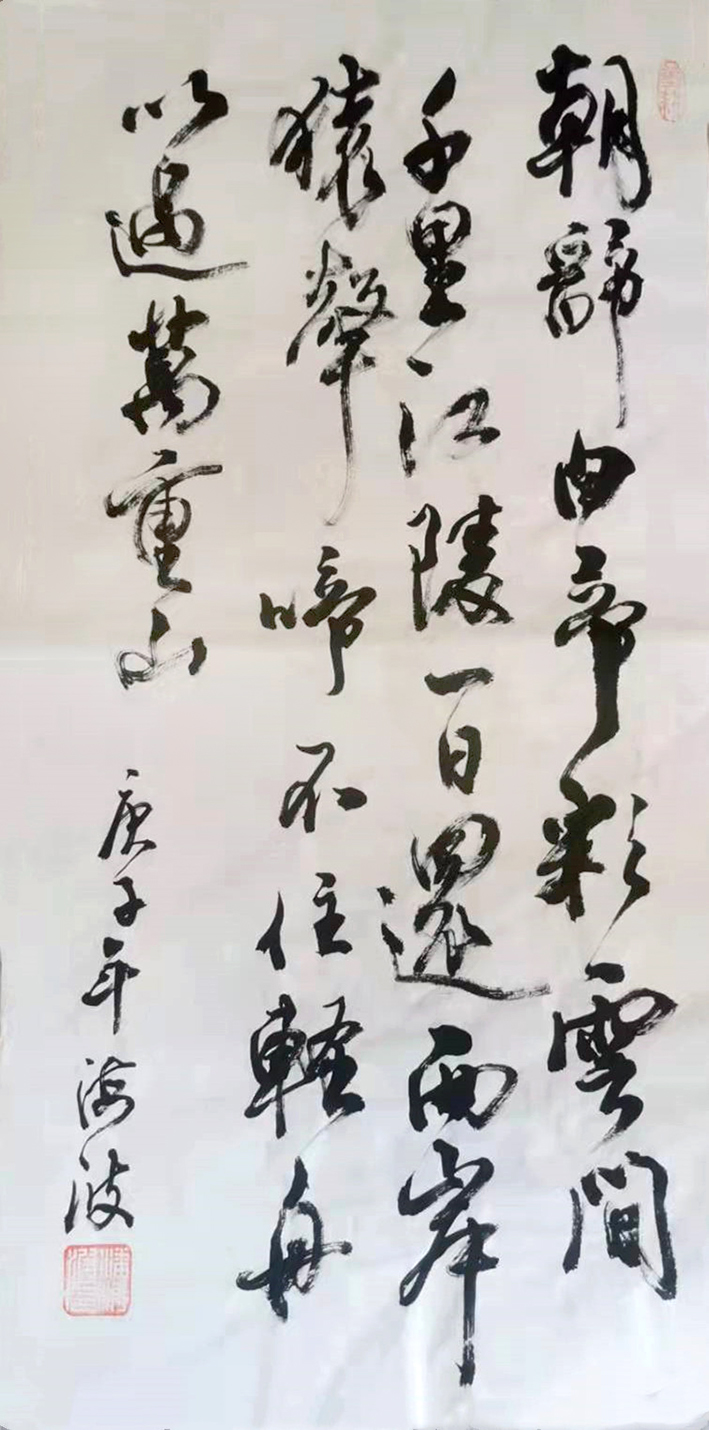 朝辭白帝彩雲間
千里江陵一日還兩岸
猿聲啼不住輕舟
以過萬重山
庚子年海波